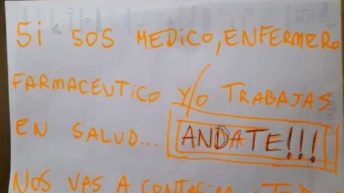 SI SOS MEDICO, ENFERMERO
FARMACEUTICO Y/O TRABAJAS
EN SALUD... ANDATE!!!
NOS VAS A